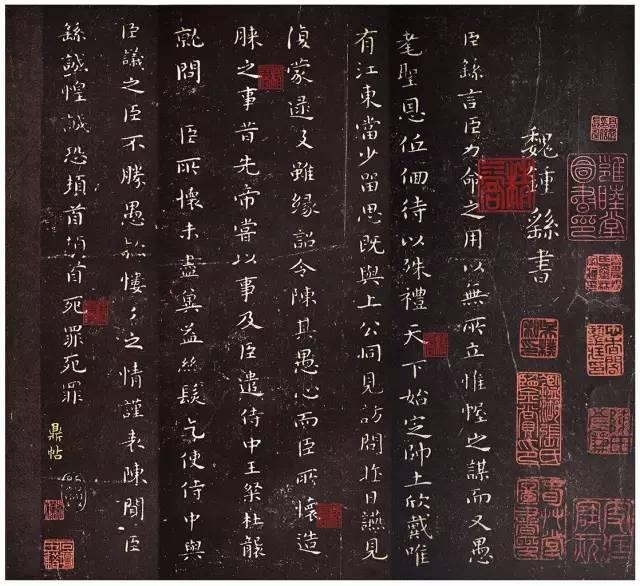 魏鍾繇書
臣繇言臣力命之用以無所立惟幄之謀而又愚
耄聖恩低佪待以殊禮天下始定帥土欣戴唯
有江東當少留思既與上公同見訪問昨日讌見
復蒙逮及雖緣詔令陳其愚心而臣所懷造
膝之事昔先帝嘗以事及臣遣侍中王粲杜襲
就問臣所懷未盡冀益絲髮乞使侍中與
臣議之臣不勝愚款慺々之情謹表陳聞臣
繇誠惶誠恐頓首頓首死罪死罪
鼎帖